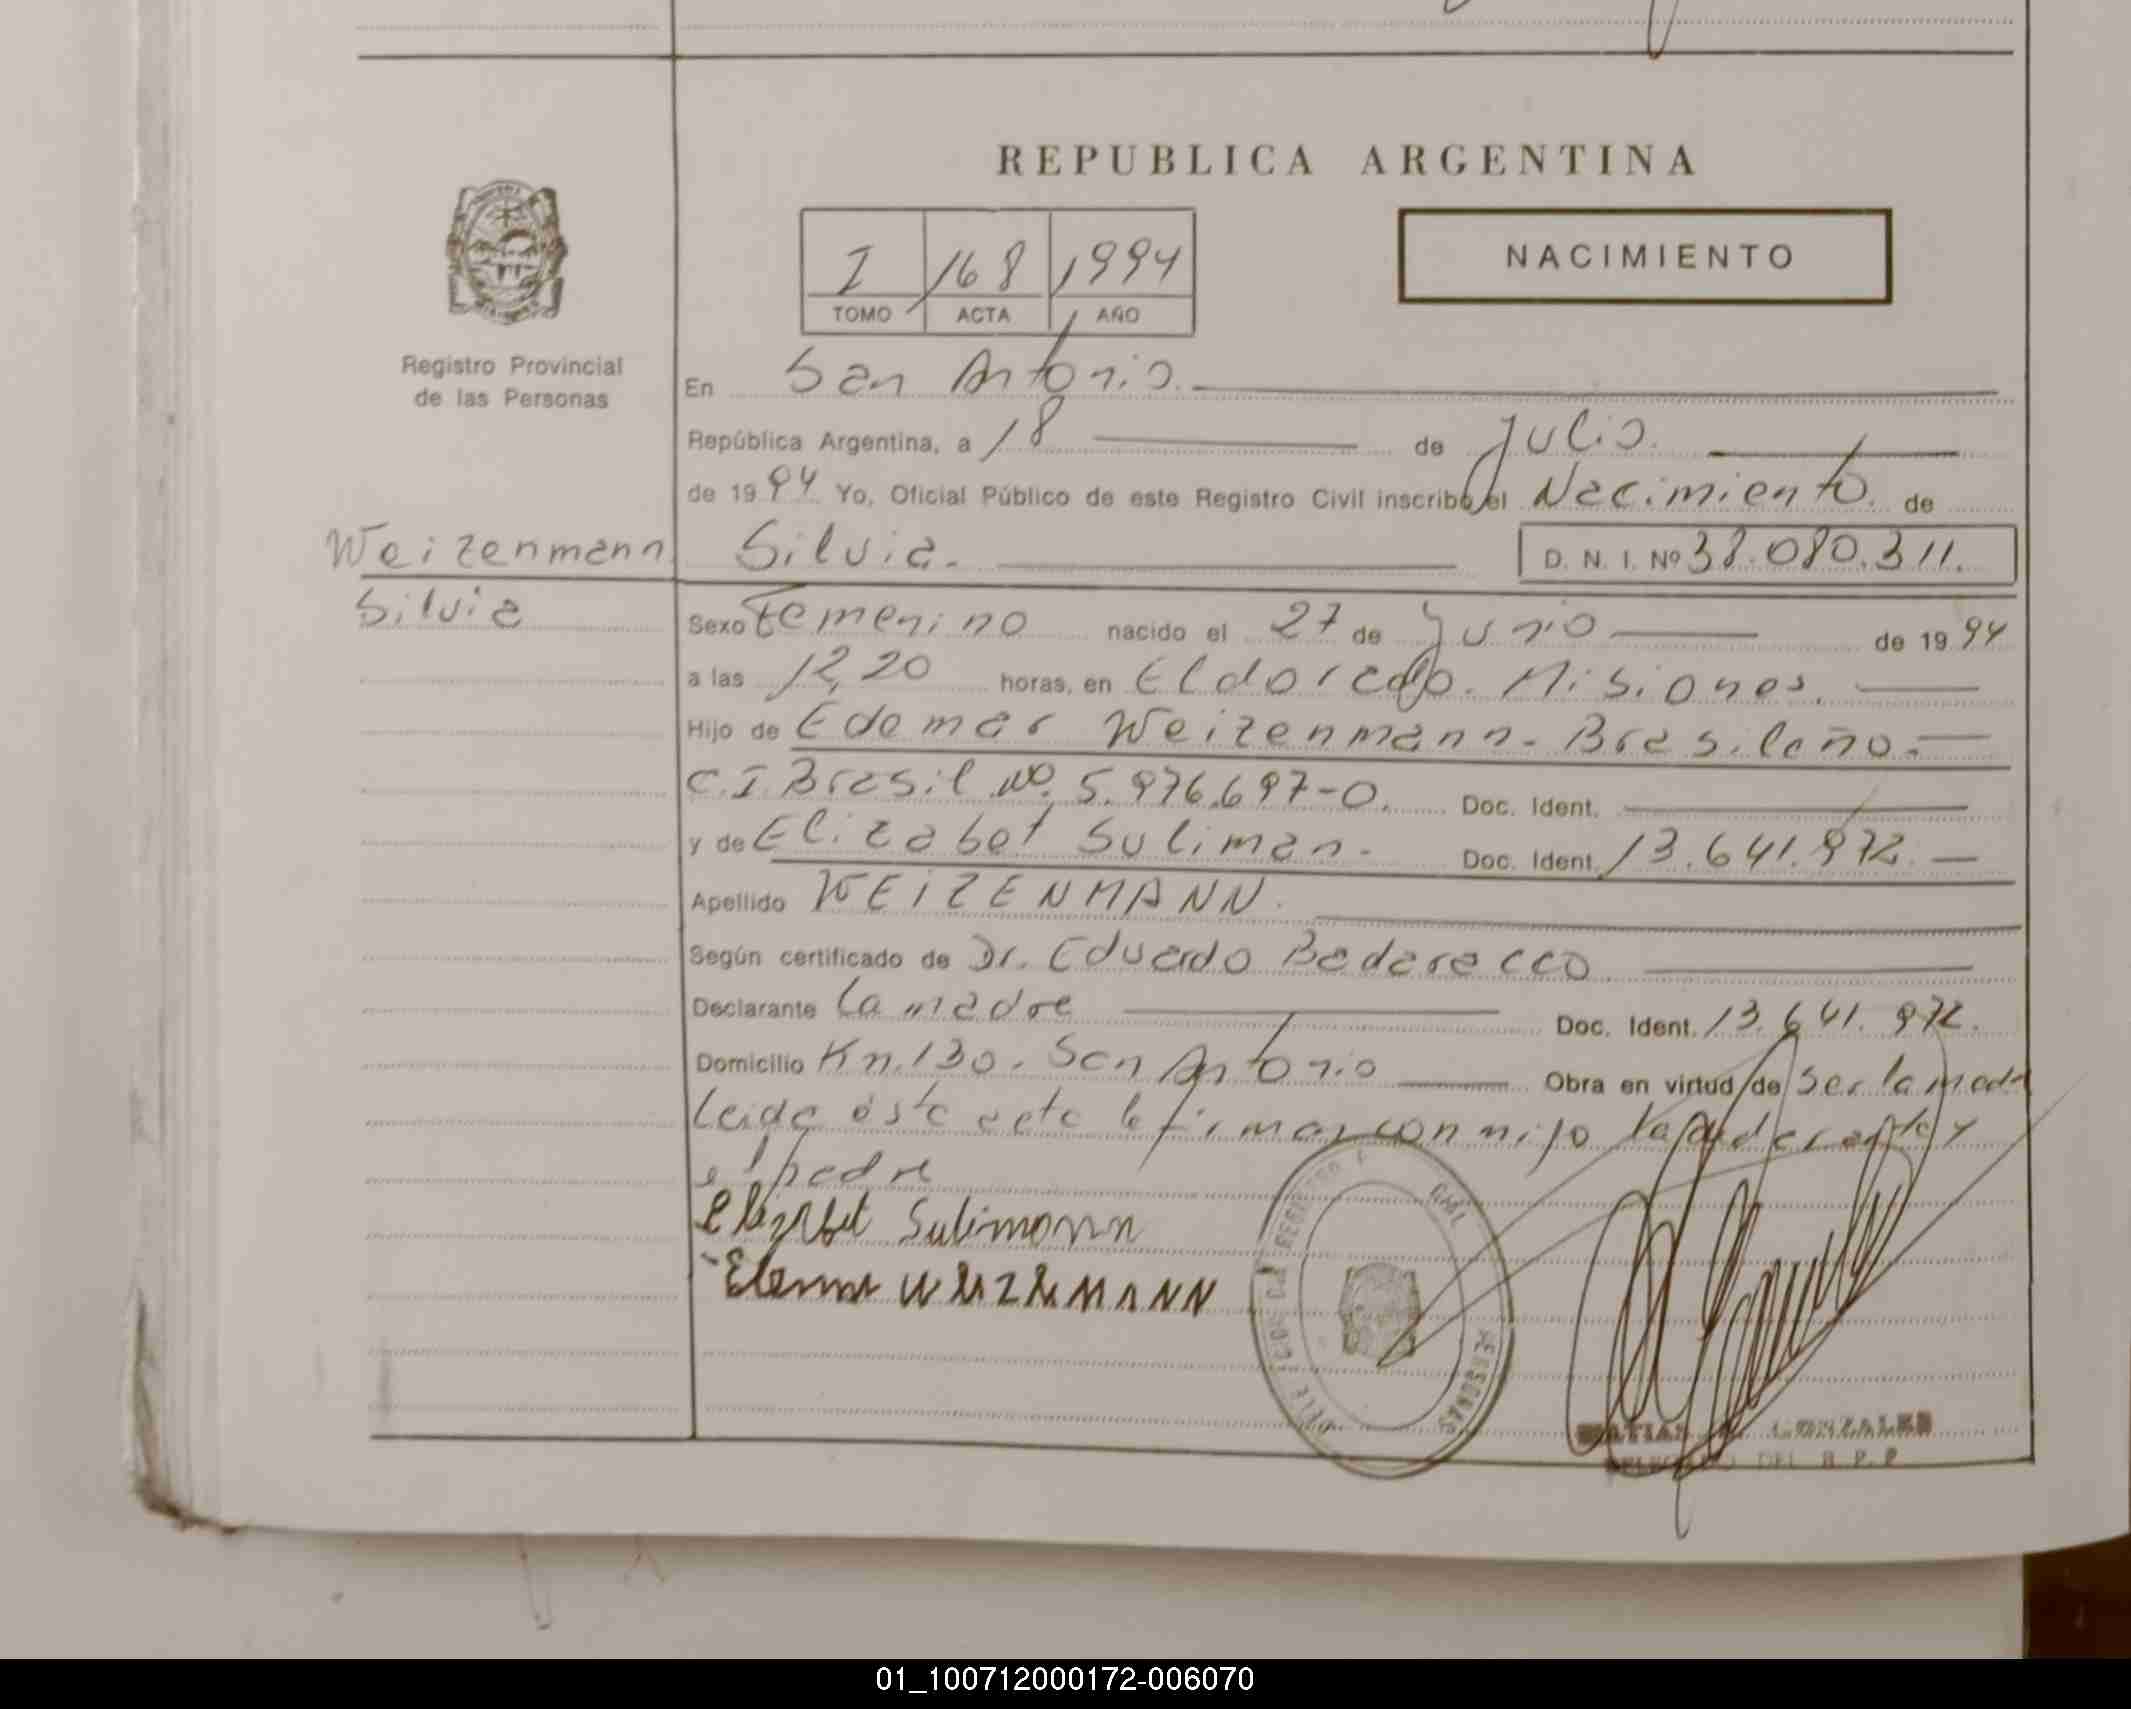 REPUBLICA ARGENTINA
NACIMIENTO
I 168 1994
TOMO ACTA AÑO
Registro Provincial
de las Personas
En San Antonio.
República Argentina, a 18 de Julio.
de 1994 Yo, Oficial Público de este Registro Civil inscribo el Nacimiento. de
Weizenmann Silvia. D. N. I. Nº 38.080.311.
Silvia
Sexo Femenino nacido el 27 de Junio de 1994
a las 12,20 horas, en Eldorado. Misiones.
Hijo de Edemar Weizenmann. Brasileño.
C.I. Brasil Nº. 5.976.697-0. Doc. Ident.
y de Elizabet Suliman. Doc. Ident. 13.641.972.
Apellido WEIZENMANN.
Según certificado de Dr. Eduardo Badaracco
Declarante la madre Doc. Ident. 13.641.972.
Domicilio Km. 130. San Antonio Obra en virtud de ser la madre
leida este acta la firman conmigo la y
el padre
Elizabet Sulimann
WEIZENMANN
GONZALES
DELEGADO DEL R. P. P
01_100712000172-006070